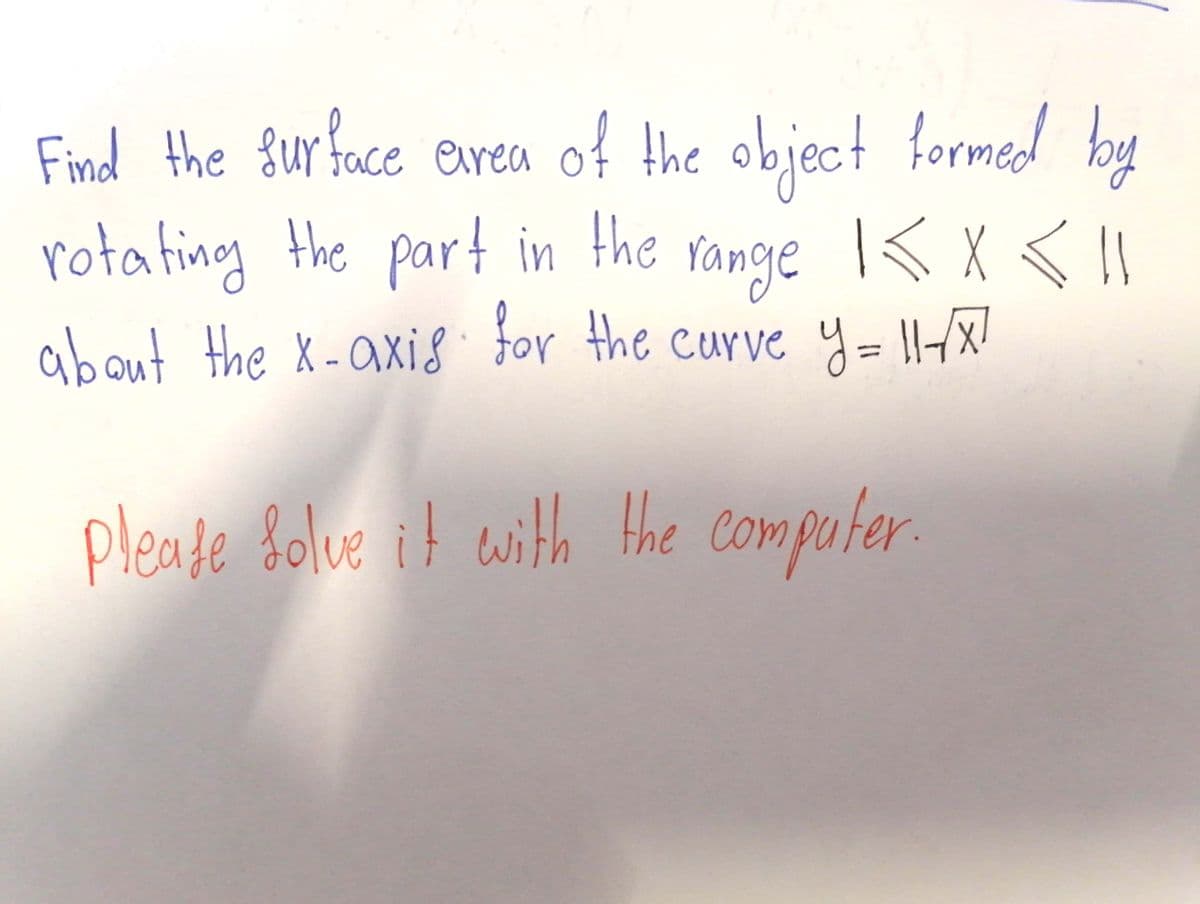 Find the surface area of the object formed by
rotating the part in the range 1 ⩽ x ⩽ 11
about the x-axis for the curve y = 11-√x
please solve it with the computer.